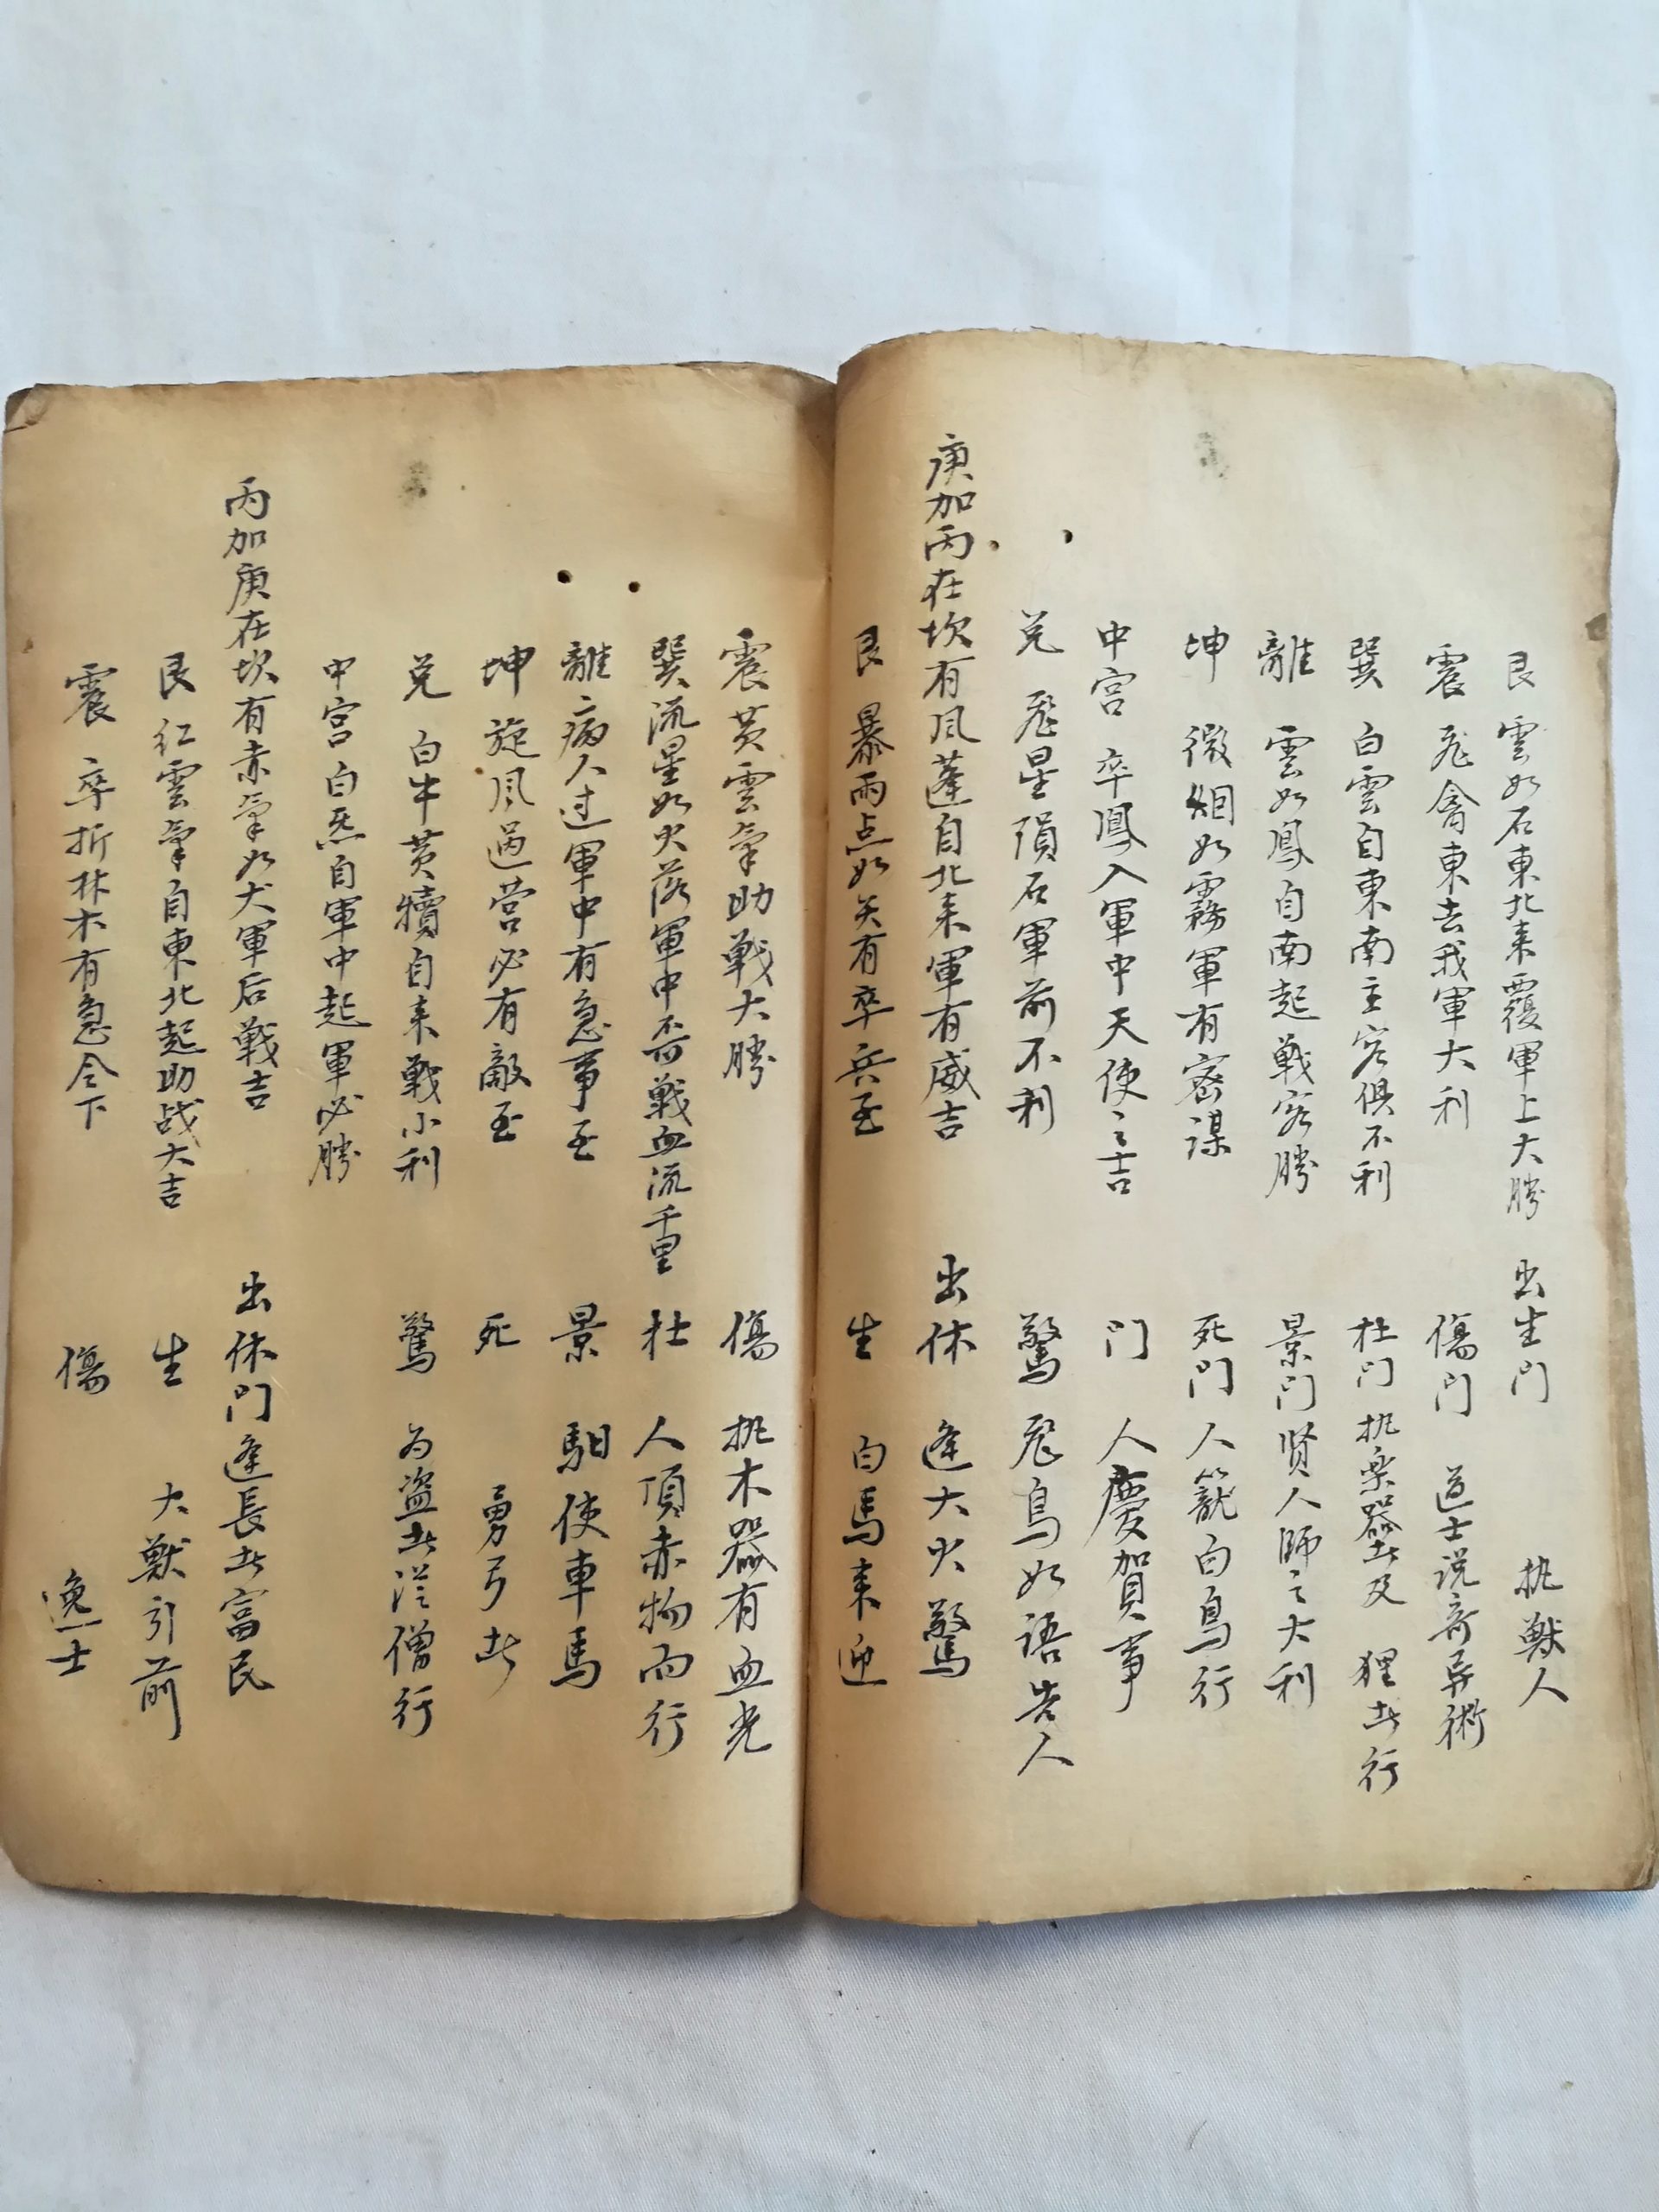 艮 雲如石東北来覆軍上大勝 出生门 执獸人
震 飛禽東去我軍大利 傷门 道士说奇异術
巽 白雲自東南主客俱不利 杜门 执樂器者及 狸者行
離 雲如鳳自南起戰客勝 景门 贤人师之大利
坤 微烟如霧軍有密谋 死门 人籠白鳥行
中宫 卒鳳入軍中天使之吉 门 人慶加賀事
兑 飛星隕石軍前不利 驚 飛鳥如語告人
庚加丙在坎有风蓬自北来軍有威吉 出休 逢大火驚
艮 暴雨点如关有卒兵至 生 白馬来迎
震黄雲氣助戰大勝 傷 执木器有血光
巽流星如火落軍中不可戰血流千里 杜 人頂赤物而行
離 病人过軍中有急事至 景 駟使車馬
坤 旋風過营必有敵至 死 勇弓者
兑 白牛黄犢自来戰小利 驚 为盗者从僧行
中宫 白炁自軍中起軍必勝
丙加庚在坎有赤氣如犬軍后戰吉 出休门逢長者富民
艮 红雲氣自東北起助战大吉 生 大獸引前
震 卒折林木有急令下 傷 逸士